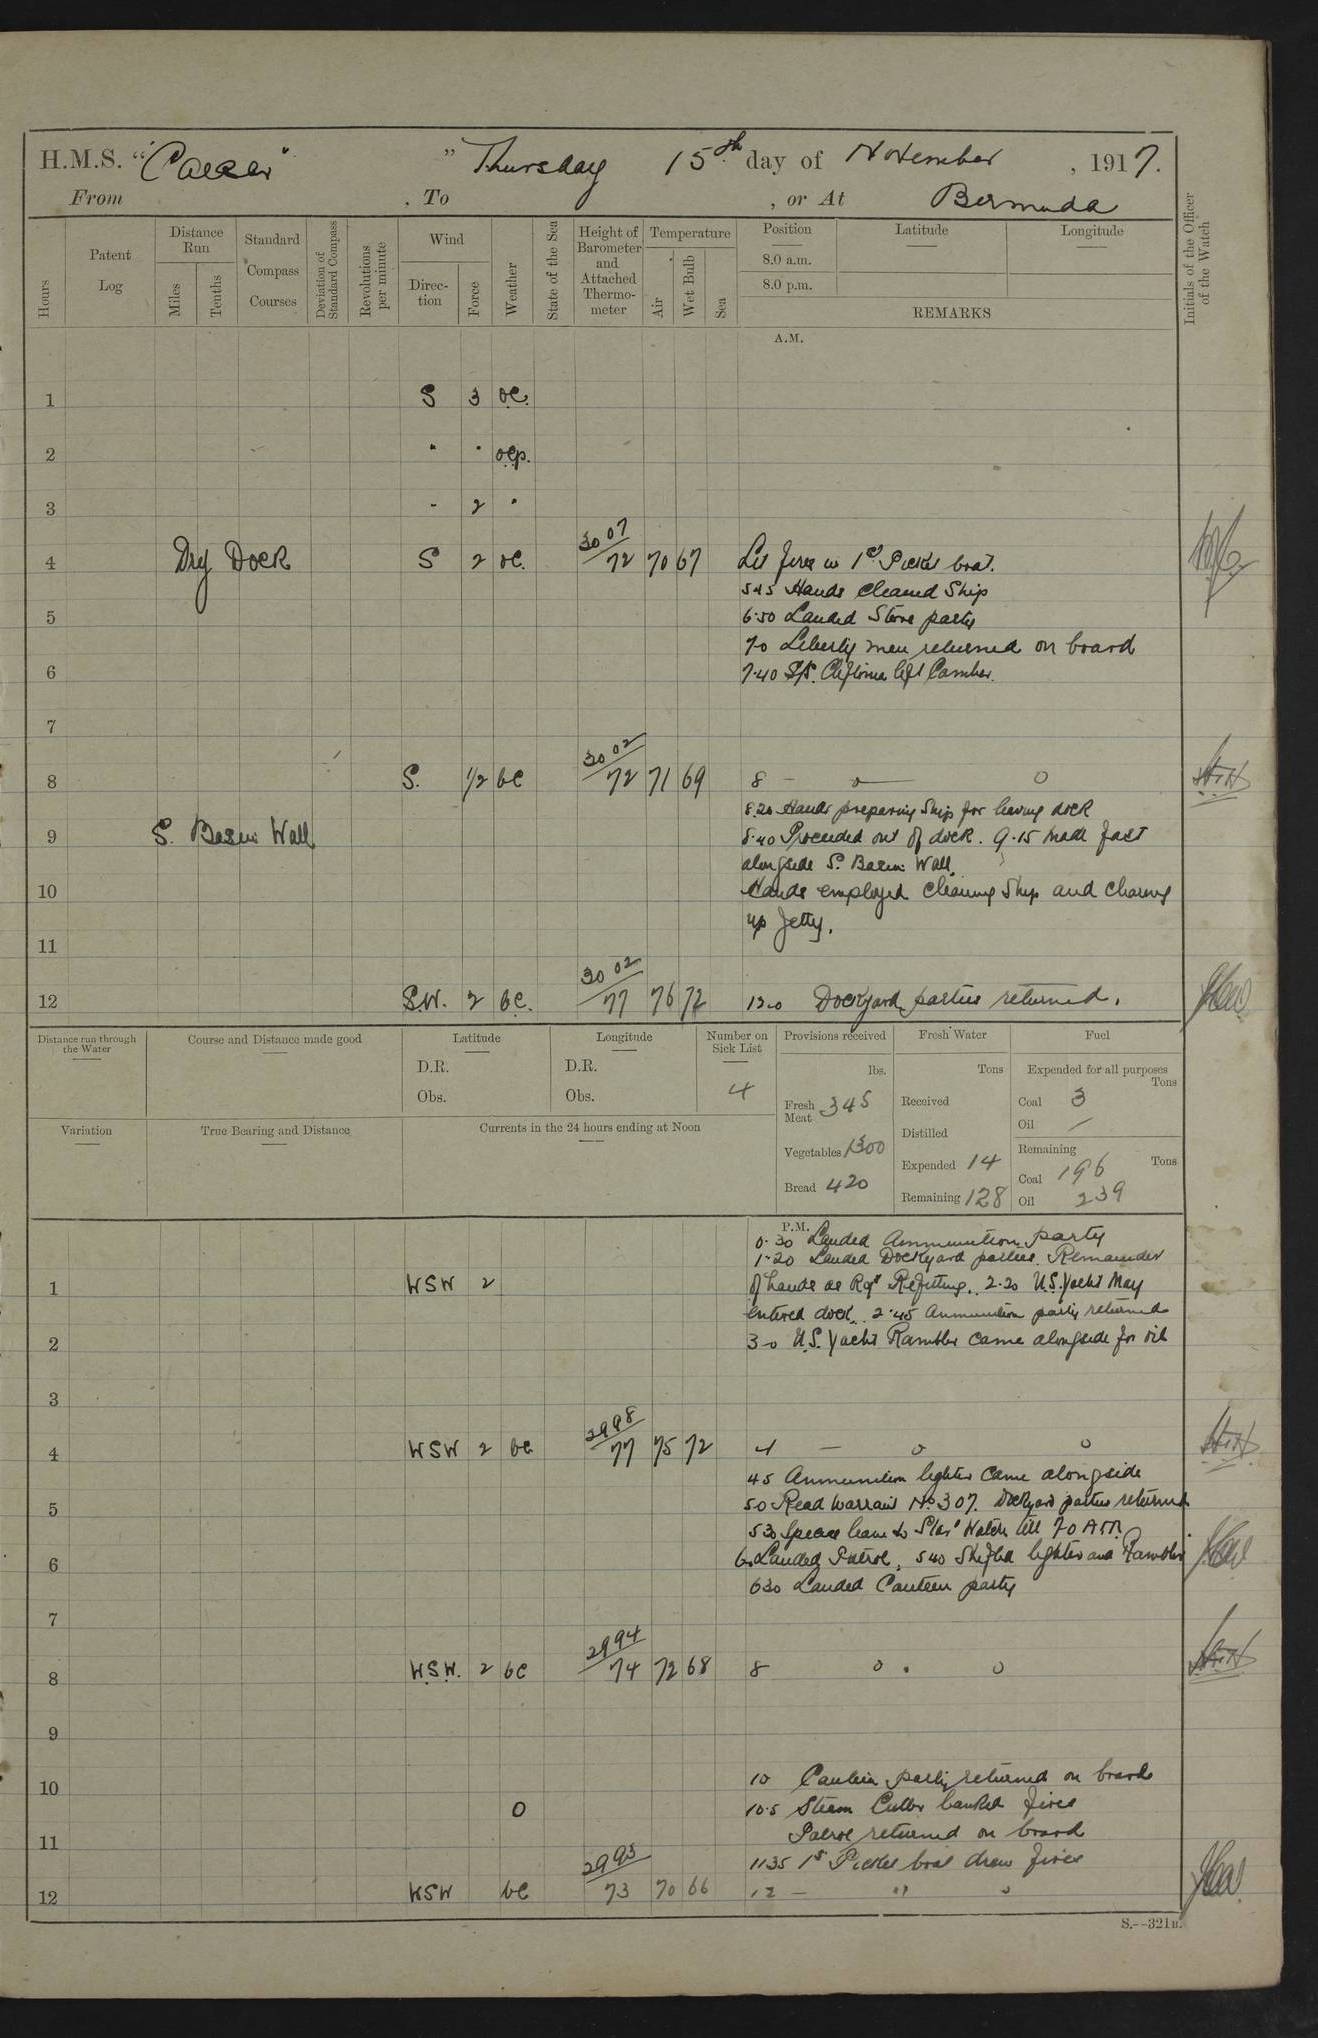 H.M.S. "Caesar" " Thursday 15th day of November , 1917.
From , To , or At Bermuda
Hours
Patent Log
Distance Run
Miles
Tenths
Standard Compass Courses
Deviation of Standard Compass
Revolutions per minute
Wind
Direction
Force
Weather
State of the Sea
Height of Barometer and Attached Thermometer
Temperature
Air
Wet Bulb
Sea
Position
8.0 a.m.
8.0 p.m.
Latitude
Longitude
REMARKS
Initials of the Officer of the Watch
A.M.
1 S 3 oc.
2 " " ocp.
3 " 2 "
4 Dry Dock S 2 oc. 30 07 / 72 70 67 Lit fires in 1st Picket boat.
545 Hands Cleaned Ship
5
6.50 Landed Store party
7.0 Liberty men returned on board
6
7.40 S/S. left Camber.
7
8 S. 1/2 bc 30 02 / 72 71 69 8 — o — o
8.20 Hands preparing Ship for leaving dock
9 S. Basin Wall 8.40 Proceeded out of dock. 9.15 Made fast
alongside S. Basin Wall.
10 Hands employed cleaning Ship and clearing
up Jetty.
11
12 S.W. 2 bc. 30 02 / 77 76 72 12.0 Dockyard parties returned.
Distance run through the Water
Course and Distance made good
Latitude
D.R.
Obs.
Longitude
D.R.
Obs.
Number on Sick List
4
Provisions received
lbs.
Fresh Meat 345
Vegetables 1300
Bread 420
Fresh Water
Tons
Received
Distilled
Expended 14
Remaining 128
Fuel
Expended for all purposes
Tons
Coal 3
Oil /
Remaining
Tons
Coal 196
Oil 239
Variation
True Bearing and Distance
Currents in the 24 hours ending at Noon
P.M.
0.30 Landed Ammunition party
1.20 Landed Dockyard parties. Remainder
1 WSW 2 of hands as Reqd Refitting. 2.20 U.S. Yacht May
entered dock. 2.45 Ammunition party returned
2 3.0 U.S. Yacht Rambler came alongside for oil
3
4 WSW 2 bc 29 98 / 77 75 72 4 — o o
45 Ammunition lighter came alongside
5 50 Read Warrant No. 307. Dockyard parties returned
530 leave to Star Watch till 70 AM.
6 60 Landed Patrol. 540 Shifted lighter and Rambler
630 Landed Canteen party
7
8 WSW. 2 bc 29 94 / 74 72 68 8 o . o
9
10 10 Canteen party returned on board
O 10.5 Steam Cutter banked fires
Patrol returned on board
11
1135 1st Picket boat drew fires
12 WSW bc 29 93 / 73 70 66 12 — " "
S.—321B.